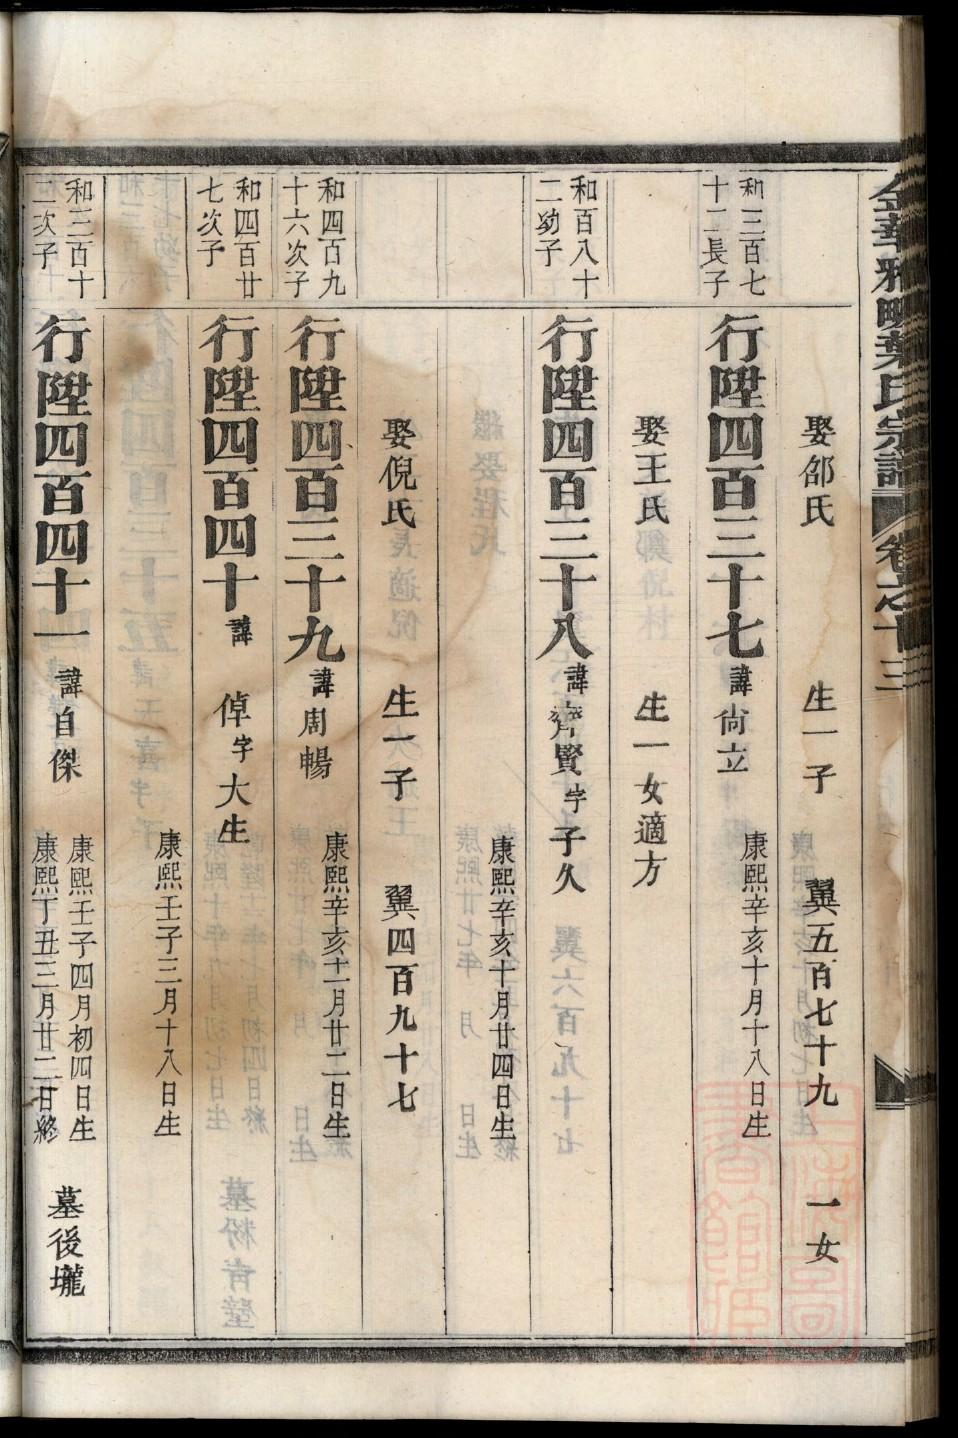 金華雅畈葉氏宗譜 卷之十三
娶邵氏 生一子 翼五百七十九 一女
和三百七十二長子
行陞四百三十七 諱尙立 康熙辛亥十月十八日生
娶王氏 生一女適方
和百八十二幼子
行陞四百三十八 諱齊賢字子久
康熙辛亥十月廿四日生
娶倪氏 生一子 翼四百九十七
和四百九十六次子
行陞四百三十九 諱周暢 康熙辛亥十一月廿二日生
和四百廿七次子
行陞四百四十 諱倬字大生
康熙壬子三月十八日生
和三百十二次子
行陞四百四十一 諱自傑 康熙壬子四月初四日生
康熙丁丑三月廿二日終 墓後壠